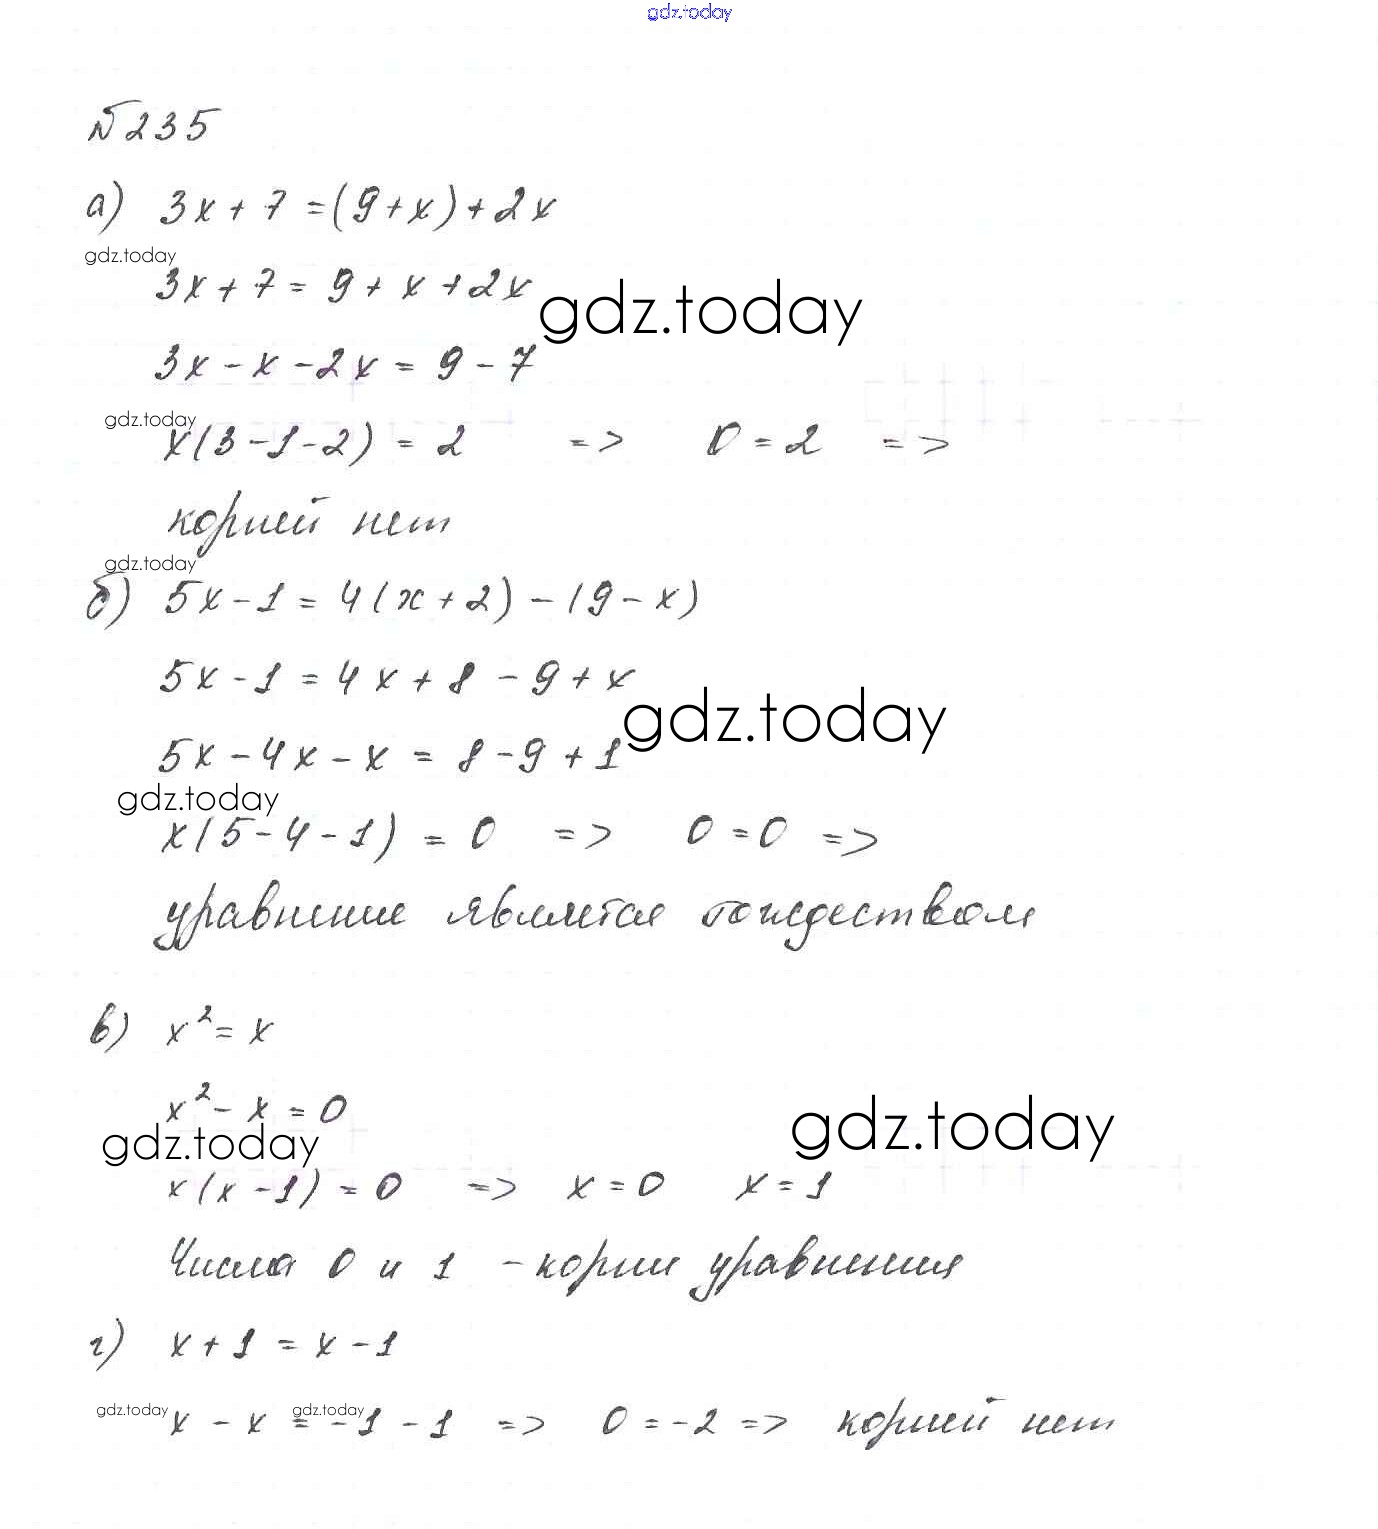 gdz.today
№235
а) 3x + 7 = (9 + x) + 2x
gdz.today
3x + 7 = 9 + x + 2x
gdz.today
3x - x - 2x = 9 - 7
gdz.today
x(3 - 1 - 2) = 2 => 0 = 2 =>
корней нет
gdz.today
б) 5x - 1 = 4(x + 2) - (9 - x)
5x - 1 = 4x + 8 - 9 + x
gdz.today
5x - 4x - x = 8 - 9 + 1
gdz.today
x(5 - 4 - 1) = 0 => 0 = 0 =>
уравнение является тождеством
в) x² = x
x² - x = 0
gdz.today gdz.today
x(x - 1) = 0 => x = 0 x = 1
Числа 0 и 1 - корни уравнения
г) x + 1 = x - 1
gdz.today gdz.today
x - x = -1 - 1 => 0 = -2 => корней нет